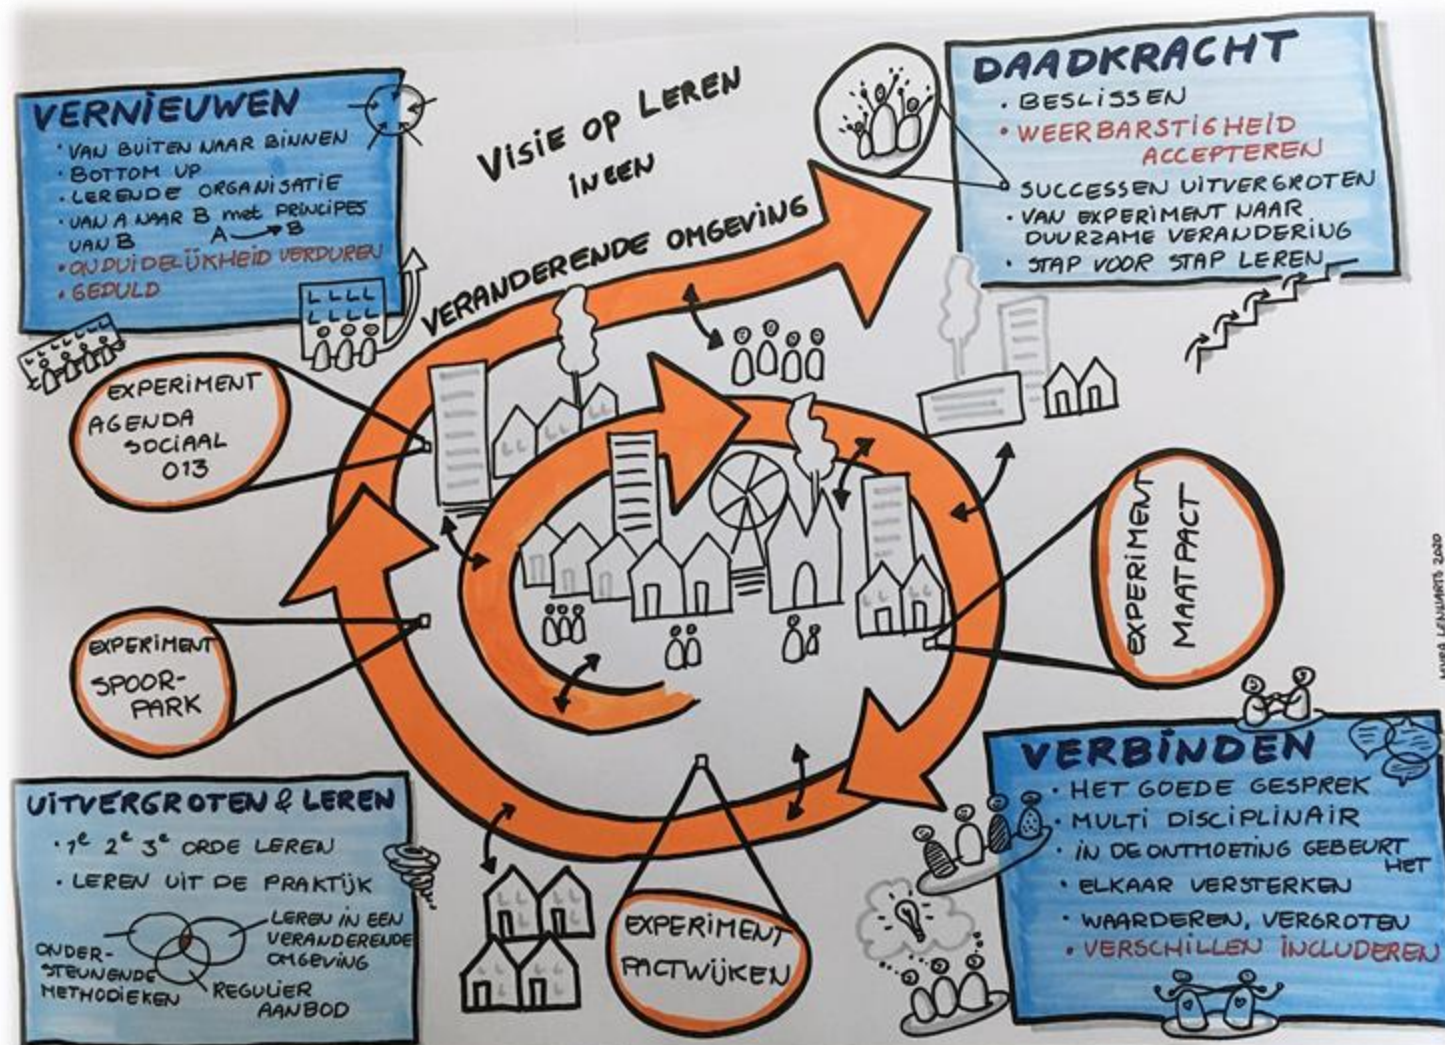 VISIE OP LEREN
IN EEN
VERANDERENDE OMGEVING
VERNIEUWEN
• VAN BUITEN NAAR BINNEN
• BOTTOM UP
• LERENDE ORGANISATIE
• VAN A NAAR B met PRINCIPES
VAN B A B
• ONDUIDELIJKHEID VERDUREN
• GEDULD
DAADKRACHT
• BESLISSEN
• WEERBARSTIGHEID
ACCEPTEREN
SUCCESSEN UITVERGROTEN
• VAN EXPERIMENT NAAR
DUURZAME VERANDERING
• STAP VOOR STAP LEREN
EXPERIMENT
AGENDA
SOCIAAL
013
EXPERIMENT
SPOOR-
PARK
EXPERIMENT
MAATPACT
EXPERIMENT
PACTWIJKEN
UITVERGROTEN & LEREN
• 1e 2e 3e ORDE LEREN
• LEREN UIT DE PRAKTIJK
ONDER-
STEUNENDE
METHODIEKEN
LEREN IN EEN
VERANDERENDE
OMGEVING
REGULIER
AANBOD
VERBINDEN
• HET GOEDE GESPREK
• MULTI DISCIPLINAIR
• IN DE ONTMOETING GEBEURT
HET
• ELKAAR VERSTERKEN
• WAARDEREN, VERGROTEN
• VERSCHILLEN INCLUDEREN
2020